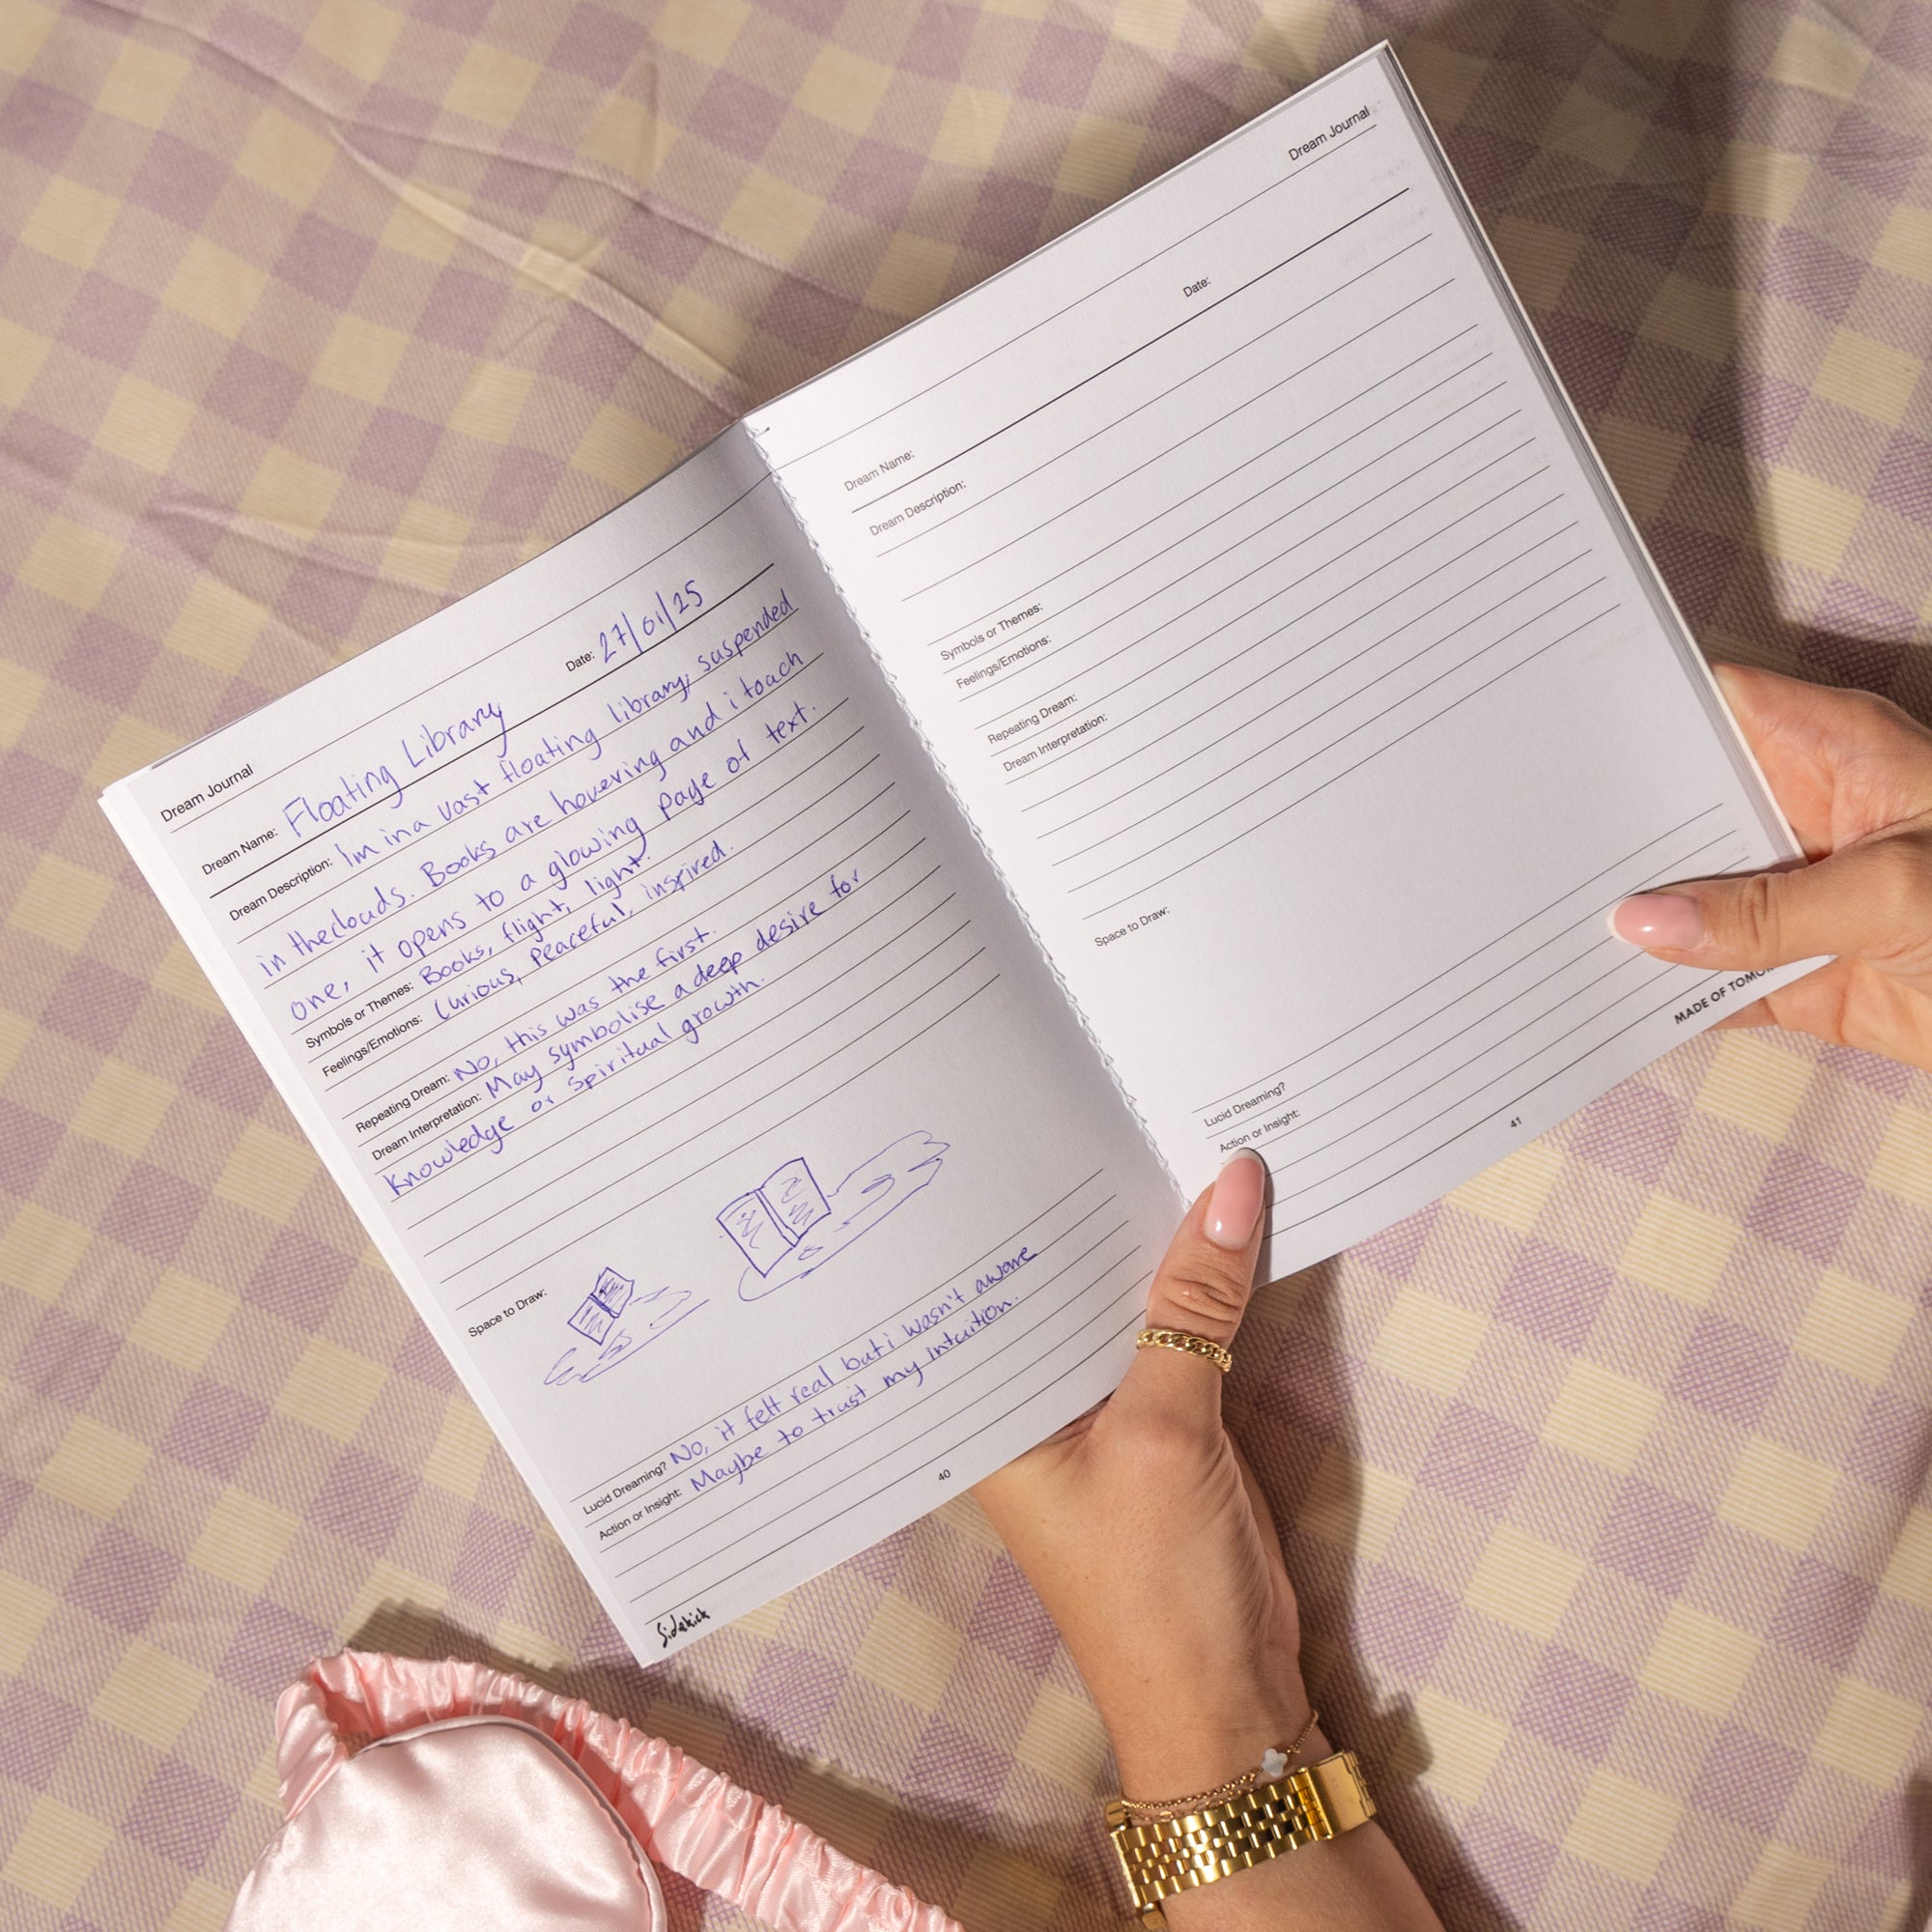 Dream Journal
Dream Name: Floating Library Date: 27/01/25
Dream Description: Im in a vast floating library, suspended
in the clouds. Books are hovering and i touch
one, it opens to a glowing page of text.
Symbols or Themes: Books, flight, light.
Feelings/Emotions: Curious, Peaceful, inspired.
Repeating Dream: No, this was the first.
Dream Interpretation: May symbolise a deep desire for
knowledge or spiritual growth.
Space to Draw:
Lucid Dreaming? No, it felt real but i wasn't aware
Action or Insight: Maybe to trust my intuition.
40
Sidekick
Dream Journal
Dream Name: Date:
Dream Description:
Symbols or Themes:
Feelings/Emotions:
Repeating Dream:
Dream Interpretation:
Space to Draw:
Lucid Dreaming?
Action or Insight:
41
MADE OF